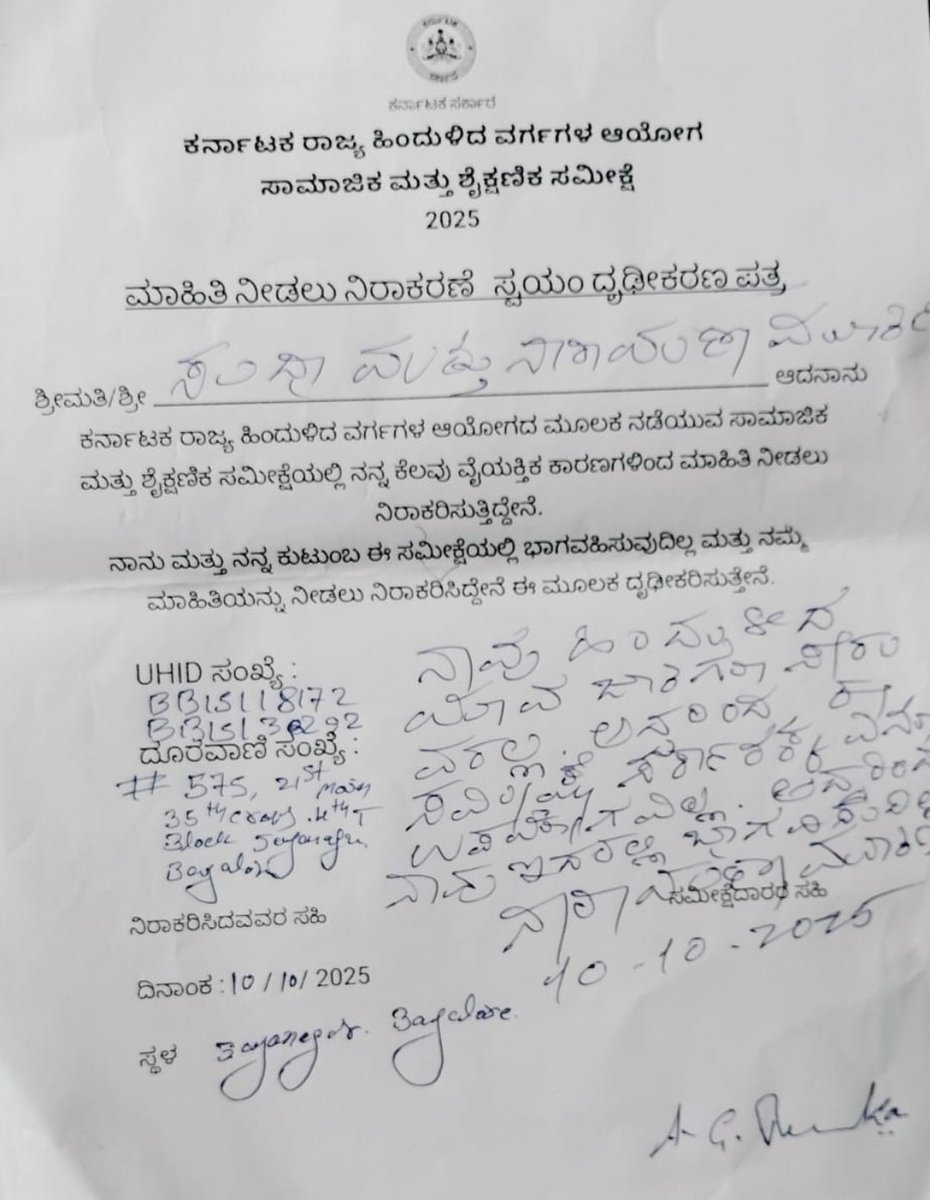 ಕರ್ನಾಟಕ ಸರ್ಕಾರ
ಕರ್ನಾಟಕ ರಾಜ್ಯ ಹಿಂದುಳಿದ ವರ್ಗಗಳ ಆಯೋಗ
ಸಾಮಾಜಿಕ ಮತ್ತು ಶೈಕ್ಷಣಿಕ ಸಮೀಕ್ಷೆ
2025
ಮಾಹಿತಿ ನೀಡಲು ನಿರಾಕರಣೆ ಸ್ವಯಂ ದೃಢೀಕರಣ ಪತ್ರ
ಶ್ರೀಮತಿ/ಶ್ರೀ ಸುಧಾ ಮತ್ತು ನಾರಾಯಣಾ ಆದನಾನು
ಕರ್ನಾಟಕ ರಾಜ್ಯ ಹಿಂದುಳಿದ ವರ್ಗಗಳ ಆಯೋಗದ ಮೂಲಕ ನಡೆಯುವ ಸಾಮಾಜಿಕ
ಮತ್ತು ಶೈಕ್ಷಣಿಕ ಸಮೀಕ್ಷೆಯಲ್ಲಿ ನನ್ನ ಕೆಲವು ವೈಯಕ್ತಿಕ ಕಾರಣಗಳಿಂದ ಮಾಹಿತಿ ನೀಡಲು
ನಿರಾಕರಿಸುತ್ತಿದ್ದೇನೆ.
ನಾನು ಮತ್ತು ನನ್ನ ಕುಟುಂಬ ಈ ಸಮೀಕ್ಷೆಯಲ್ಲಿ ಭಾಗವಹಿಸುವುದಿಲ್ಲ ಮತ್ತು ನಮ್ಮ
ಮಾಹಿತಿಯನ್ನು ನೀಡಲು ನಿರಾಕರಿಸಿದ್ದೇನೆ ಈ ಮೂಲಕ ದೃಢೀಕರಿಸುತ್ತೇನೆ.
UHID ಸಂಖ್ಯೆ :
BB15118172
ದೂರವಾಣಿ ಸಂಖ್ಯೆ :
# 575, 21st main
35th cross, 4th T
Block
ನಾವು ಹಿಂದುಳಿದ
ಯಾವ ಜಾತಿಗೂ ಸೇರಿ
ವರಲ್ಲ. ಅದರಿಂದ
ಸರ್ಕಾರಕ್ಕೆ
ಉಪಯೋಗವಿಲ್ಲ. ಅದ್ದರಿಂದ
ನಾವು ಇದರಲ್ಲಿ
ನಿರಾಕರಿಸಿದವವರ ಸಹಿ
ಸಮೀಕ್ಷೆದಾರರ ಸಹಿ
10-10-2025
ದಿನಾಂಕ : 10/10/ 2025
ಸ್ಥಳ